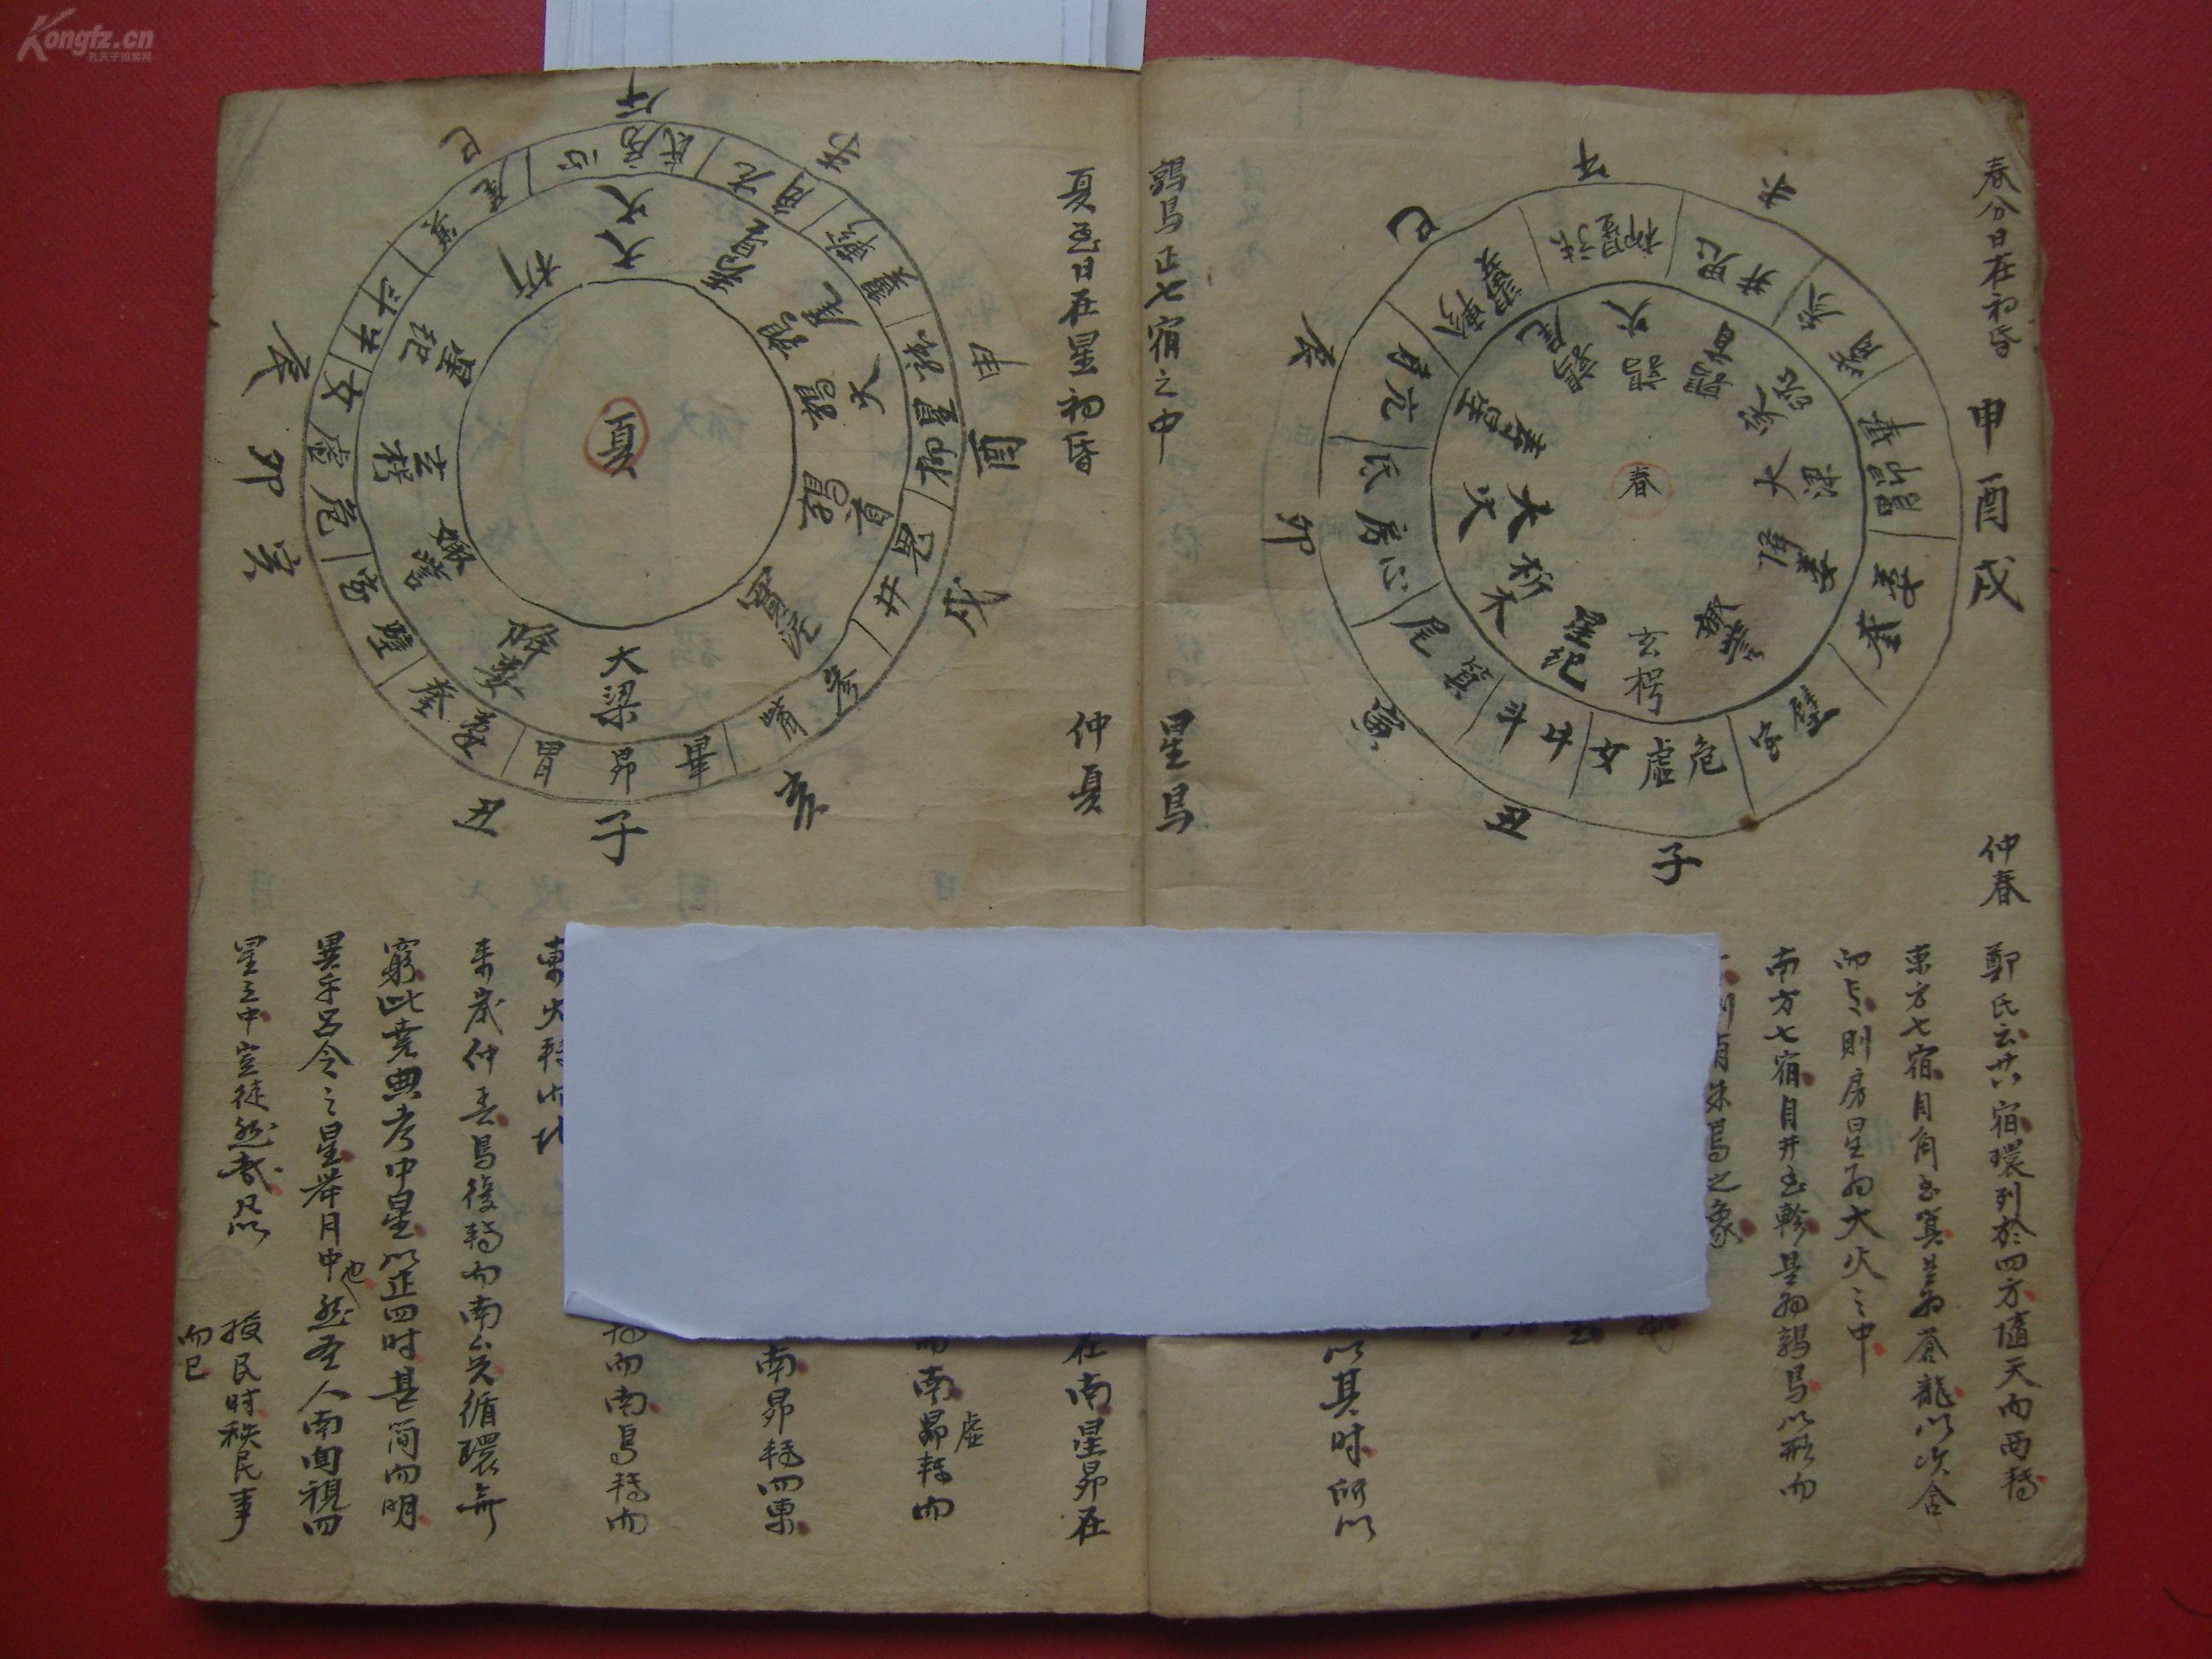 Kongfz.cn
孔夫子拍卖网
春分日在初昏
申 酉 戌
仲春
午
未
巳
辰
卯
寅
丑
子
春
柳星張
井鬼
參
觜
畢
昴胃
婁
奎
壁
室
危
虛
女
牛
斗
箕
尾
心
房
氐
亢
角
軫
翼
鶉尾
鶉火
鶉首
實沈
大梁
降婁
娵訾
玄枵
星紀
析木
大火
壽星
鄭氏云廿八宿環列於四方隨天而西轉
東方七宿自角至箕是為蒼龍以次舍
而言則房星為大火之中
南方七宿自井至軫是為鶉鳥以形而
則有朱鳥之象
以其時所以
鶉鳥正七宿之中
星鳥
夏至日在星初昏
仲夏
午
未
申
酉
戌
亥
子
丑
寅
卯
辰
巳
夏
氐房心
尾
箕
斗牛
女
虛
危
室
壁
奎
婁
胃
昴
畢
觜
參
井
鬼
柳星張
翼
軫
角亢
大火
析
星紀
玄枵
娵訾
降婁
大梁
實沈
鶉首
鶉火
鶉尾
壽星
在南星昴在
而南昴轉而
虛
南昴轉而東
而南鳥轉而
東火轉而北
來歲仲春鳥復轉而南矣循環無
窮此堯典考中星以正四時甚简而明
異乎呂令之星舉月中也然聖人南面視四
星之中豈徒然哉凡以
授民时秩民事
而已